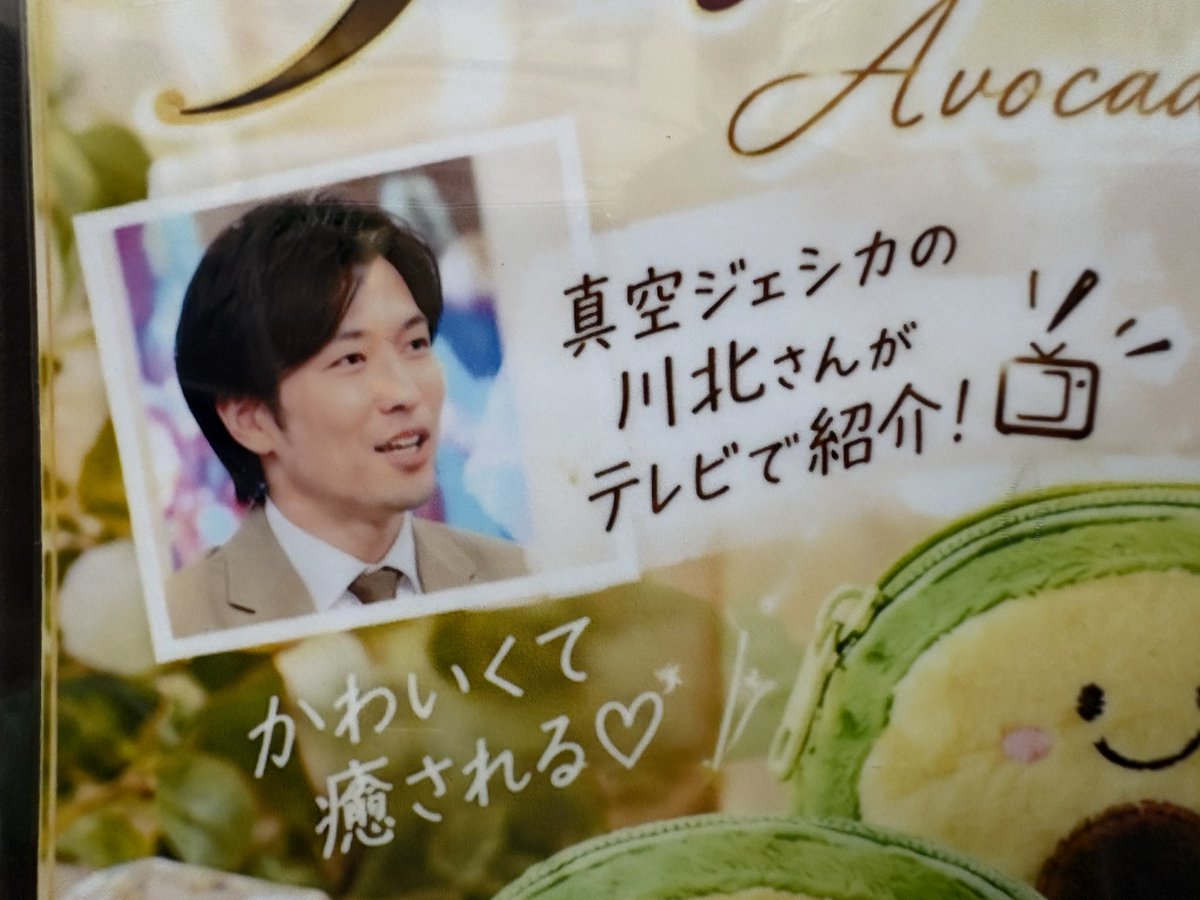 Avocad
真空ジェシカの
川北さんが
テレビで紹介!
かわいくて
癒される♡